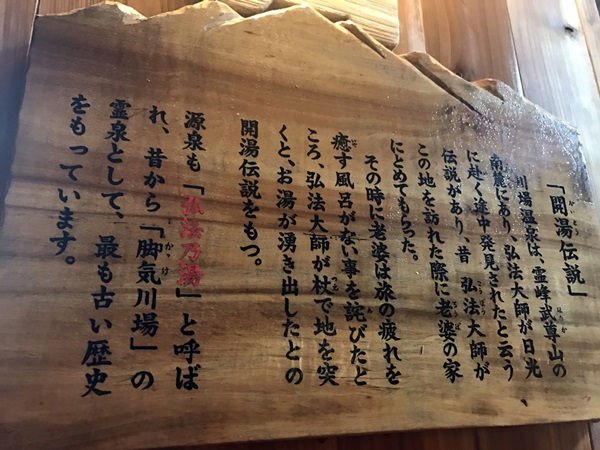 「開湯伝説」
川場温泉は、霊峰武尊山の
南麓にあり、弘法大師が日光
に赴く途中発見されたと云う
伝説があり、昔、弘法大師が
この地を訪れた際に老婆の家
にとめてもらった。
その時に老婆は旅の疲れを
癒す風呂がない事を詫びたと
ころ、弘法大師が杖で地を突
くと、お湯が湧き出したとの
開湯伝説をもつ。
源泉も「弘法乃湯」と呼ば
れ、昔から「脚気川場」の
霊泉として、最も古い歴史
をもっています。